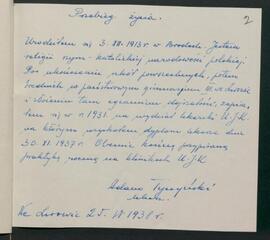 2
Przebieg życia.
Urodziłem się 3. XII. 1913 r w Brodach. Jestem
religji rzym-katolickiej narodowości polskiej
Po ukończeniu szkół powszechnych, potem
średnich w państwowym gimnazjum w Lwowie
i złożeniu tam egzaminu dojrzałości, zapisa-
łem się w r. 1931. na wydział lekarski U.J.K.
na którym uzyskałem dyplom lekarza dnia
30. XI. 1937 r. Obecnie kończę przypisaną
praktykę roczną na klinikach U.J.K.
Adam
lekarz.
We Lwowie 25. 1938 r.